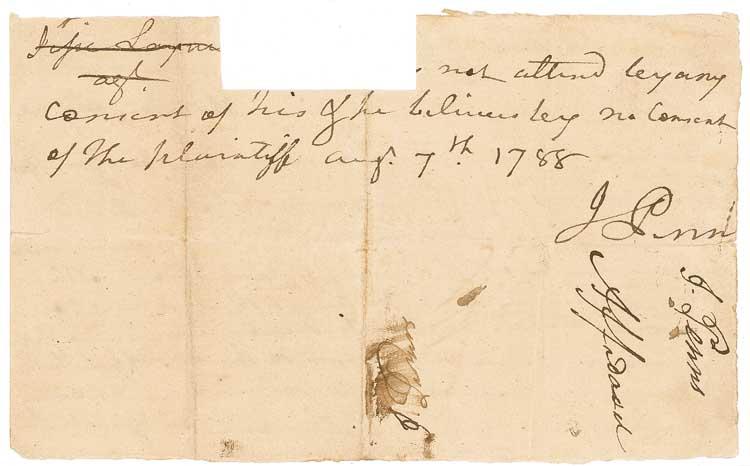 agt.
not attend by any
consent of his & he believes by no Consent
of the plaintiff aug. 7th. 1788
J Penn
J. Penns
Affidavit